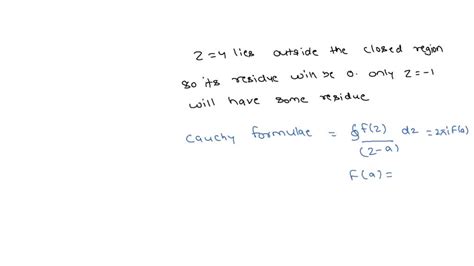 z=4 lies outside the closed region
so its residue will be 0. only z=-1
will have some residue
Cauchy formulae = ∮ F(z)/(z-a) dz = 2πi F(a)
F(a) =